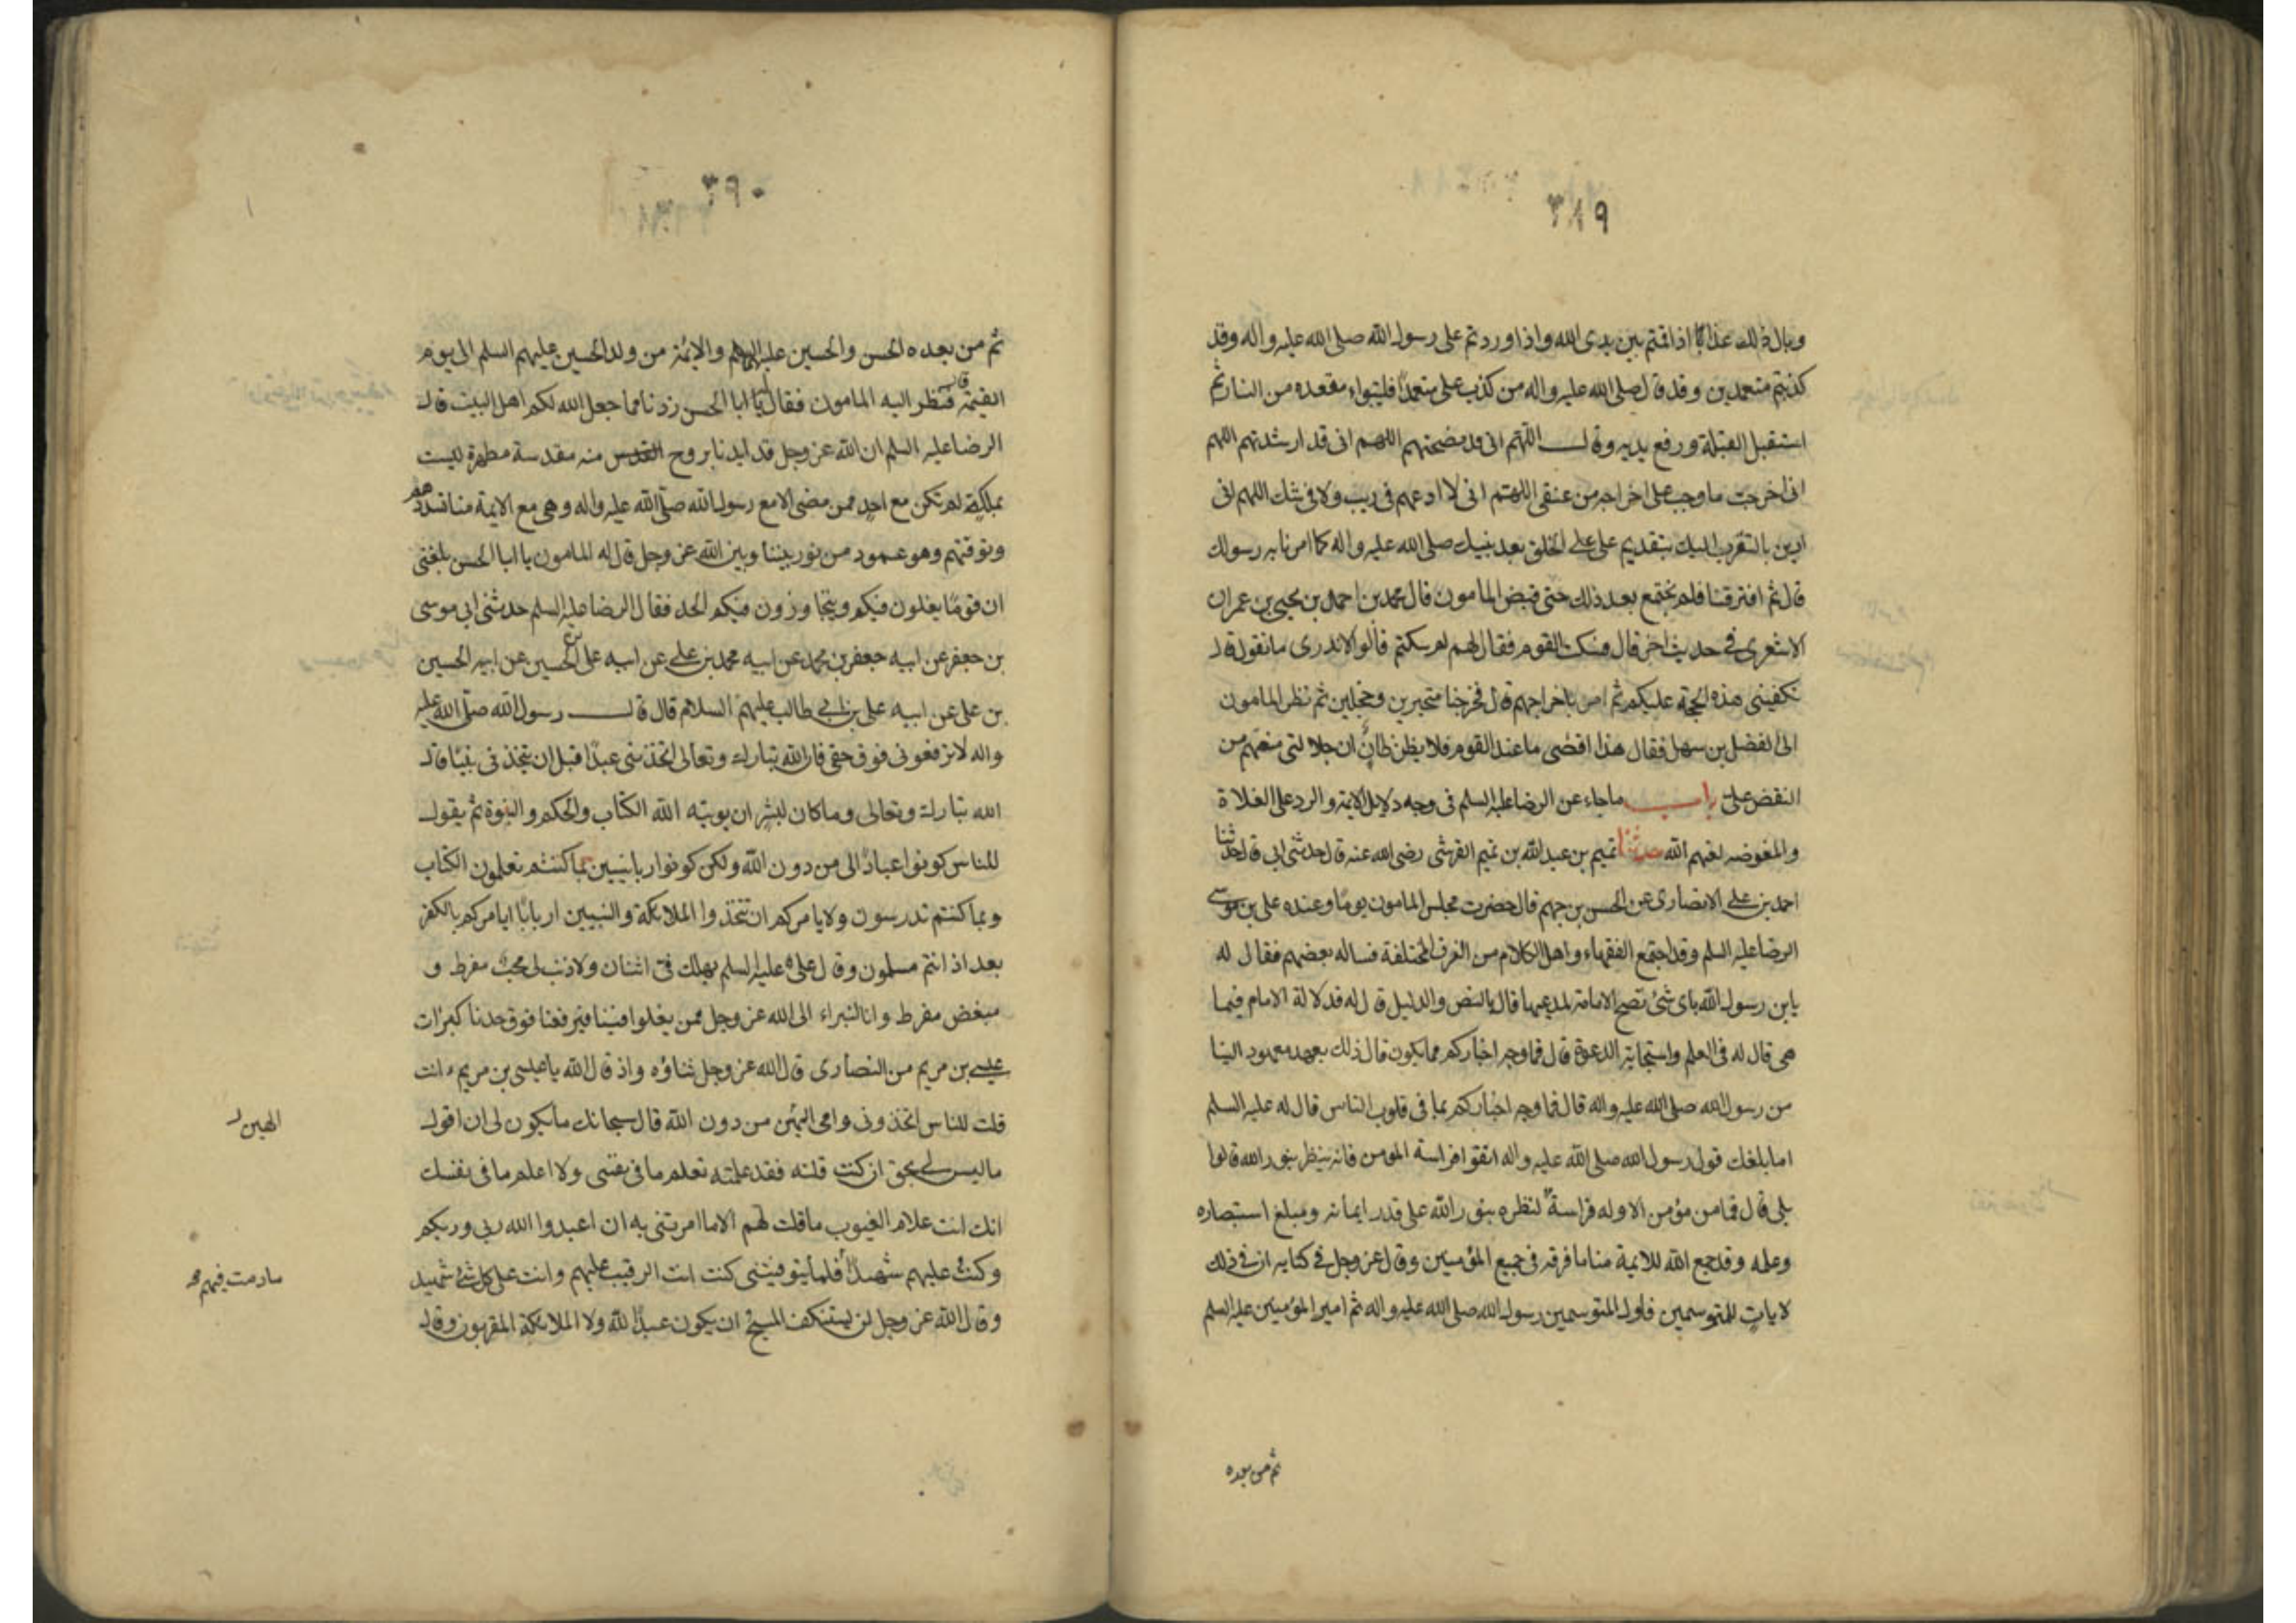 ٣٨٩
وبال ذلك غدا اذا قمتم بين يدى الله واذا وردتم على رسول الله صلى الله عليه واله وقد
كذبتم متعمدين وقد قال صلى الله عليه واله من كذب على متعمدًا فليتبواء مقعده من النار ثم
استقبل القبلة ورفع يديه وقال اللهم انى قد نصحتهم اللهم انى قد ارشدتهم اللهم
انى اخرجت ما وجب على اخراجه من عنقى اللهتم انى لا ادعهم فى ريب ولا فى شك اللهم انى
ادين بالتقرب اليك بتقديم على على الخلق بعد نبيك صلى الله عليه واله كما امرنا به رسولك
قال ثم افترقنا فلم نجتمع بعد ذلك حتى قبض المامون قال محمد بن احمد بن يحيى بن عمران
الاشعرى فى حديث اخر قال فسكت القوم فقال لهم لم سكتم قالوا لا ندرى ما نقول قال
تكفينى هذه الحجة عليكم ثم امر باخراجهم قال فخرجنا متحيرين وخجلين ثم نظر المامون
الى الفضل بن سهل فقال هذا اقصى ما عند القوم فلا يظن ظان ان جلالتى منعتهم من
النقض على باب ما جاء عن الرضا عليه السلم فى وجه دلايل الايمة والرد على الغلاة
والمفوضه لعنهم الله حدثنا تميم بن عبد الله بن تميم القرشى رضى الله عنه قال حدثنى ابى قال حدثنا
احمد بن على الانصارى عن الحسن بن جهم قال حضرت مجلس المامون يومًا وعنده على بن موسى
الرضا عليه السلم وقد اجتمع الفقهاء واهل الكلام من الفرق المختلفة فساله بعضهم فقال له
يابن رسول الله باى شئ تصح الامامة لمدعيها قال بالنص والدليل قال له فدلالة الامام فيما
هى قال له فى العلم واستجابة الدعوة قال فما وجه اخباركم مما يكون قال ذلك بعهد معهود الينا
من رسول الله صلى الله عليه واله قال فما وجه اخباركم بما فى قلوب الناس قال له عليه السلم
اما بلغك قول رسول الله صلى الله عليه واله اتقوا فراسة المومن فانه ينظر بنور الله قالوا
بلى قال فما من مؤمن الا وله فراسة لنظره بنور الله على قدر ايمانه ومبلغ استبصاره
وعلمه وقد جمع الله للايمة منا ما فرقه فى جميع المؤمنين وقال عز وجل فى كتابه ان فى ذلك
لايات للمتوسمين فاول المتوسمين رسول الله صلى الله عليه واله ثم امير المؤمنين عليه السلم
ثم من بعده
٣٩٠
ثم من بعده الحسن والحسين عليهم والايمة من ولد الحسين عليهم السلم الى يوم
القيمة قال فنظر اليه المامون فقال يا ابا الحسن زدنا مما جعل الله لكم اهل البيت قال
الرضا عليه السلم ان الله عز وجل قد ايدنا بروح القدس منه مقدسة مطهرة ليست
بملكة لم تكن مع احد ممن مضى الا مع رسول الله صلى الله عليه واله وهى مع الايمة منا تسددهم
وتوفقهم وهو عمود من نور بيننا وبين الله عز وجل قال له المامون يا ابا الحسن بلغنى
ان قومًا يغلون فيكم ويتجاوزون فيكم الحد فقال الرضا عليه السلم حدثنى ابى موسى
بن جعفر عن ابيه جعفر بن محمد عن ابيه محمد بن على عن ابيه على بن الحسين عن ابيه الحسين
بن على عن ابيه على بن ابى طالب عليهم السلام قال قال رسول الله صلى الله عليه
واله لا ترفعونى فوق حقى فان الله تبارك وتعالى اتخذنى عبدًا قبل ان يتخذنى نبيًا قال
الله تبارك وتعالى وما كان لبشر ان يوتيه الله الكتاب والحكم والنبوة ثم يقول
للناس كونوا عبادًا لى من دون الله ولكن كونوا ربانيين بما كنتم تعلمون الكتاب
وبما كنتم تدرسون ولا يامركم ان تتخذوا الملايكة والنبيين اربابًا ايامركم بالكفر
بعد اذ انتم مسلمون وقال على عليه السلم يهلك فى اثنان ولا ذنب لى محب مفرط و
مبغض مفرط وانا لنبراء الى الله عز وجل ممن يغلوا فينا فيرفعنا فوق حدنا كبرات
عيسى بن مريم من النصارى قال الله عز وجل ثناؤه واذ قال الله يا عيسى بن مريم ءانت
قلت للناس اتخذونى وامى الهين من دون الله قال سبحانك ما يكون لى ان اقول
الهين
ما ليس لى بحق ان كنت قلته فقد علمته تعلم ما فى نفسى ولا اعلم ما فى نفسك
انك انت علام الغيوب ما قلت لهم الا ما امرتنى به ان اعبدوا الله ربى وربكم
وكنت عليهم شهيدًا فلما توفيتنى كنت انت الرقيب عليهم وانت على كل شئ شهيد
مادمت فيهم
وقال الله عز وجل لن يستنكف المسيح ان يكون عبدًا لله ولا الملايكة المقربون وقال